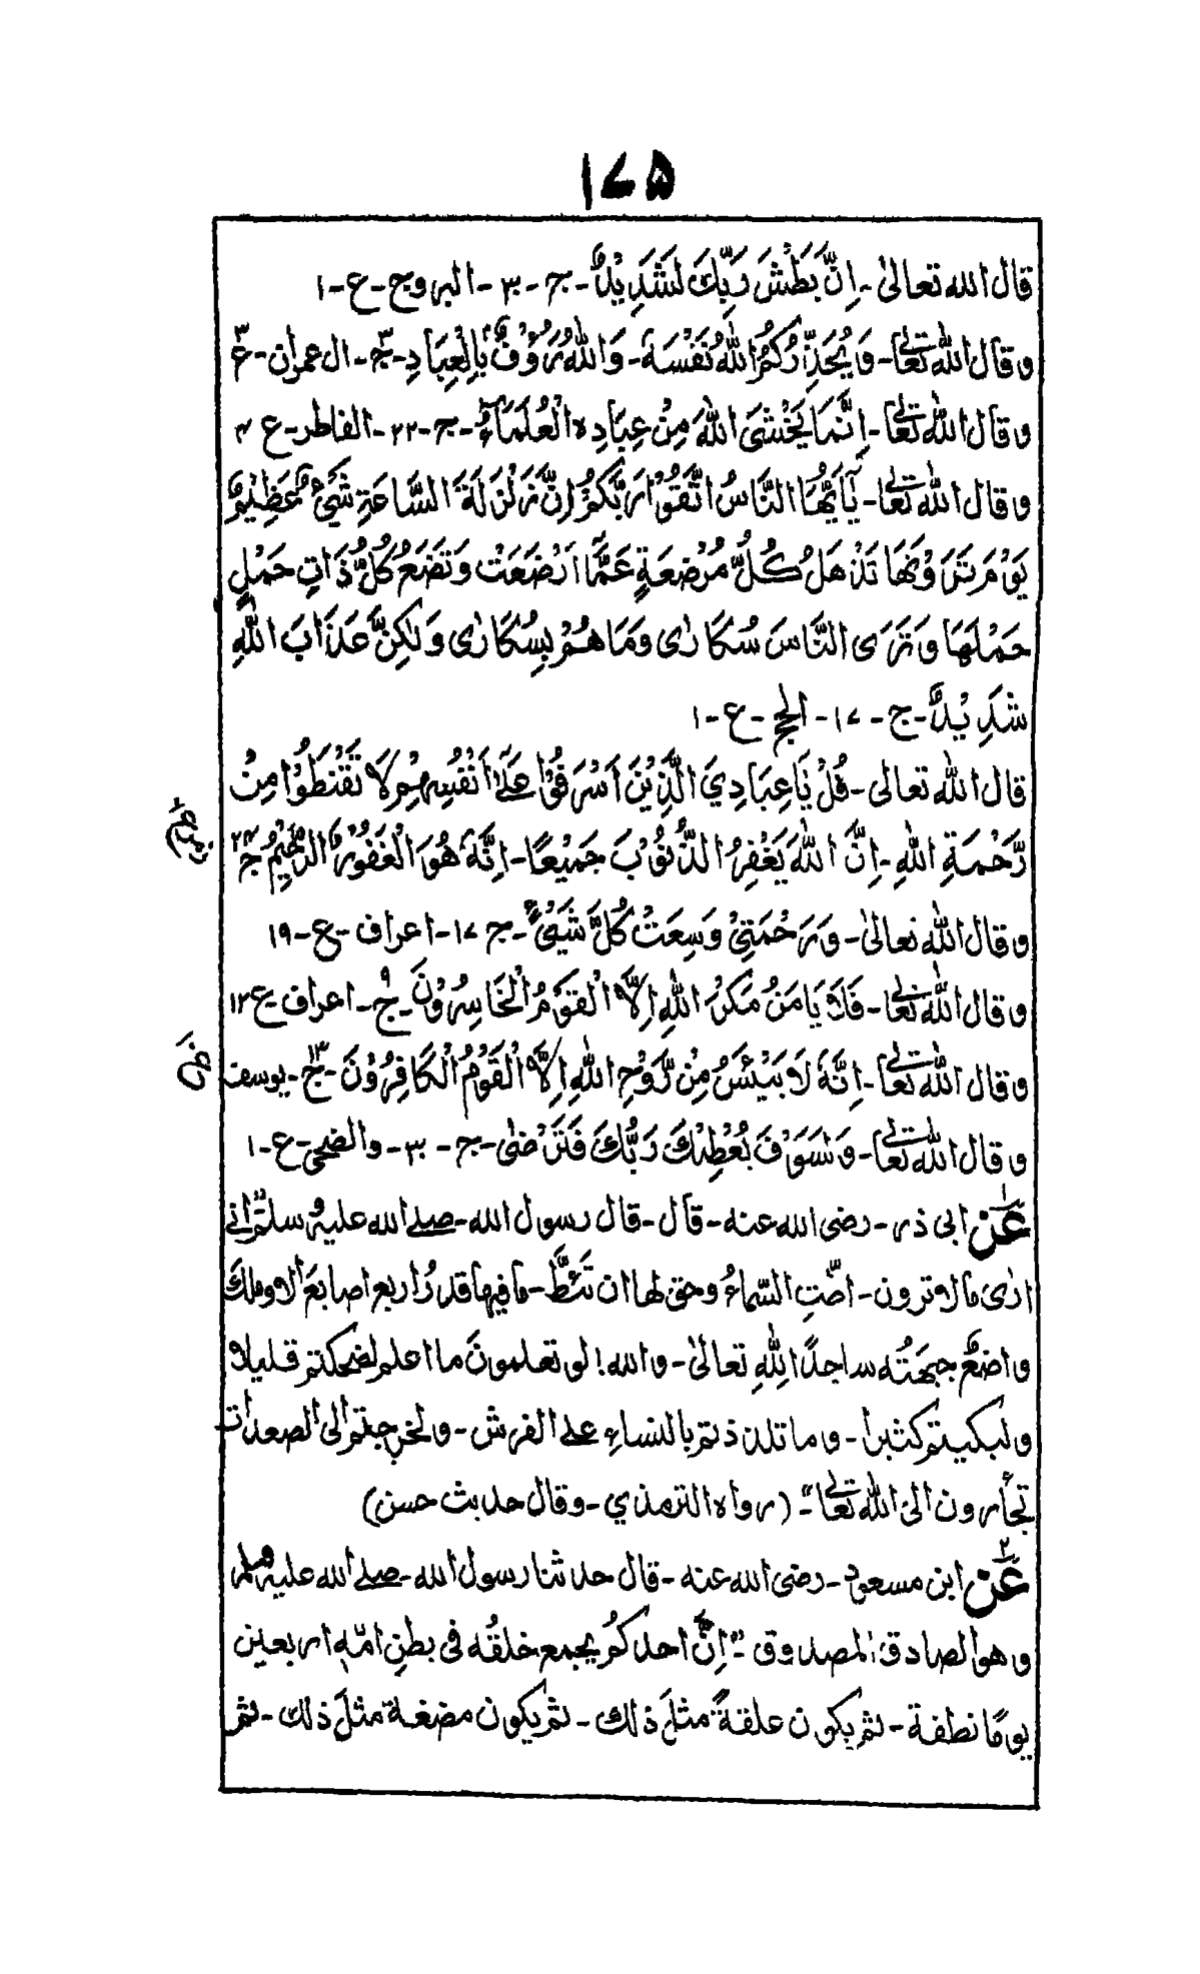 ۱۷۵
قال الله تعالیٰ - اِنَّ بَطْشَ رَبِّكَ لَشَدِیْدٌ - ج - ۳۰ - البروج - ع - ۱
وقال الله تعالیٰ - وَیُحَذِّرُكُمُ اللّٰهُ نَفْسَهٗ - وَاللّٰهُ رَءُوْفٌۢ بِالْعِبَادِ - ج۳ - ال عمران - ع۳
وقال الله تعالیٰ - اِنَّمَا یَخْشَی اللّٰهَ مِنْ عِبَادِهِ الْعُلَمَاءُ - ج - ۲۲ - الفاطر - ع ۴
وقال الله تعالیٰ - یٰٓاَیُّهَا النَّاسُ اتَّقُوْا رَبَّكُمْ اِنَّ زَلْزَلَةَ السَّاعَةِ شَیْءٌ عَظِیْمٌ
یَوْمَ تَرَوْنَهَا تَذْهَلُ كُلُّ مُرْضِعَةٍ عَمَّا اَرْضَعَتْ وَتَضَعُ كُلُّ ذَاتِ حَمْلٍ
حَمْلَهَا وَتَرَی النَّاسَ سُكَارٰی وَمَا هُمْ بِسُكَارٰی وَلٰكِنَّ عَذَابَ اللّٰهِ
شَدِیْدٌ - ج - ۱۷ - الحج - ع - ۱
قال الله تعالی - قُلْ یَا عِبَادِيَ الَّذِیْنَ اَسْرَفُوْا عَلٰی اَنْفُسِهِمْ لَا تَقْنَطُوْا مِنْ
رَّحْمَةِ اللّٰهِ - اِنَّ اللّٰهَ یَغْفِرُ الذُّنُوْبَ جَمِیْعًا - اِنَّهٗ هُوَ الْغَفُوْرُ الرَّحِیْمُ ج۲۴
وقال الله تعالیٰ - وَرَحْمَتِیْ وَسِعَتْ كُلَّ شَیْءٍ - ج ۱۷ - اعراف - ع - ۱۹
وقال الله تعالیٰ - فَلَا یَامَنُ مَكْرَ اللّٰهِ اِلَّا الْقَوْمُ الْخَاسِرُوْنَ - ج۹ - اعراف ع ۱۲
وقال الله تعالیٰ - اِنَّهٗ لَا یَیْئَسُ مِنْ رَّوْحِ اللّٰهِ اِلَّا الْقَوْمُ الْكَافِرُوْنَ - ج۱۳ - یوسف
وقال الله تعالیٰ - وَلَسَوْفَ یُعْطِیْكَ رَبُّكَ فَتَرْضٰی - ج - ۳۰ - والضحی - ع - ۱
عَنْ ابی ذر - رضی الله عنه - قال - قال رسول الله - صلے الله علیه وسلم "انی
ارٰی ما لا ترون - اطّتِ السّماءُ وحق لها ان تَئِطَّ - ما فیها قدرُ اربع اصابعَ الا وملكَ
واضعٌ جبهَتُه ساجدًا لِلّٰهِ تعالیٰ - والله! لو تعلمونَ ما اعلم لضحكتم قلیلا
ولبكیتم كثیرا - وما تلذذتم بالنساءِ علی الفرش - ولخرجتم الی الصعدات
تجأرون الیٰ الله تعالیٰ" - (رواه الترمذي - وقال حدیث حسن)
عَنْ۲ ابن مسعود - رضی الله عنه - قال حدثنا رسول الله - صلے الله علیه وسلم
وهو الصادق المصدوق - "اِنَّ احدكُم یجمع خلقُه فی بطنِ امّهٖ اربعین
یومًا نطفة - ثم یكون علقةً مثلَ ذلك - ثم یكون مضغة مثلَ ذلك - ثم